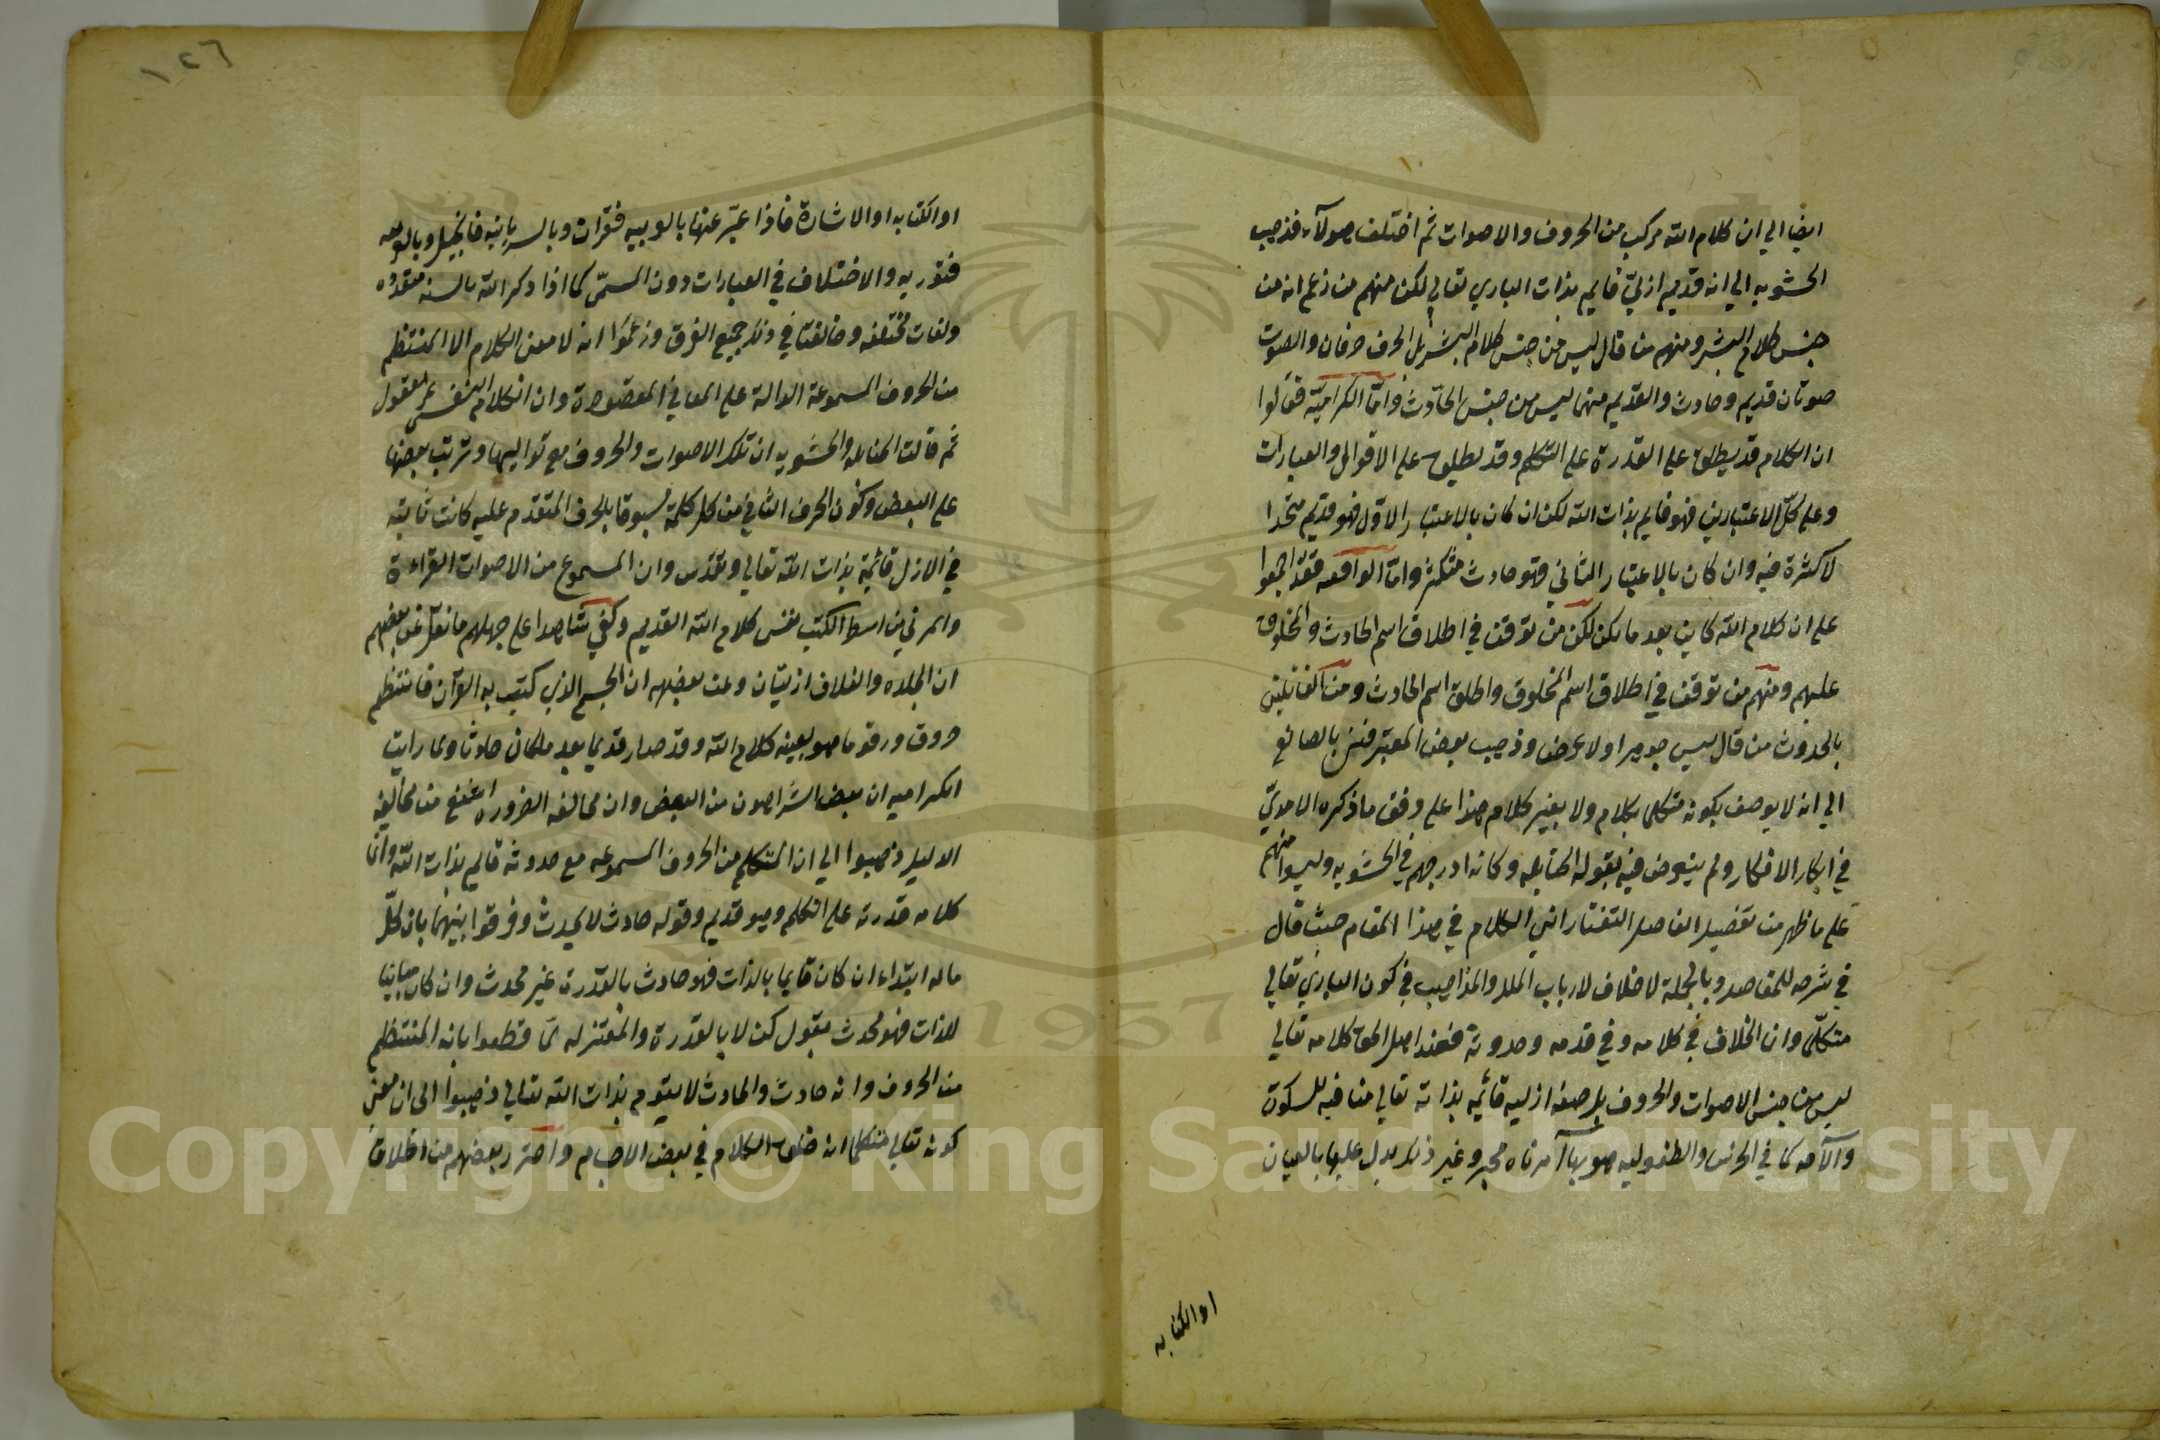 ايضا الي ان كلام الله مركب من الحروف والاصوات ثم اختلف هولآء فذهب
الحشويه الي انه قديم ازليّ قايم بذات الباري تعالي لكن منهم من زعم انه من
جنس كلام البشر ومنهم من قال ليس من جنس كلام البشر بل الحرف حرفان والصوت
صوتان قديم وحادث والقديم منهما ليس من جنس الحادث وامّا الكراميّه فقالوا
ان الكلام قد يطلق على القدرة على التكلم وقد يطلق على الاقوال والعبارات
وعلى كلّ الاعتبارين فهو قايم بذات الله لكن ان كان بالاعتبار الاوّل فهو قديم متحد
لا كثرة فيه وان كان بالاعتبار الثاني فهو حادث متكثر وامّا الواقفه فقد اجمعوا
على ان كلام الله كاين بعد مالم يكن لكن من توقف في اطلاق اسم الحادث والمخلوق
عليهم ومنهم من توقف في اطلاق اسم المخلوق واطلق اسم الحادث ومن القائلين
بالحدوث من قال ليس جوهرا ولا عرض وذهب بعض المعترفين بالصانع
الي انه لا يوصف بكونه متكلما بكلام ولا بغير كلام هذا على وفق ما ذكره الامديّ
في ابكار الافكار ولم يتعرض فيه بقوله الحنابله وكانه ادرجهم في الحشويه وليسوا منهم
على ما ظهر من تفصيل الفاضل التفتازاني الكلام في هذا المقام حيث قال
في شرحه للمقاصد وبالجملة لا خلاف لارباب الملل والمذاهب في كون الباري تعالي
متكلّما وان الخلاف في كلامه وفي قدمه وحدوثه فعند اهل الحق كلامه تعالي
ليس من جنس الاصوات والحروف بل صفه ازليه قائمه بذاته تعالي منافيه للسكوت
والآفه كما في الخرس والطفوليه هو بها آمر ناه مخبر وغير ذلك يدل عليها بالعبارة
او الكتابه
١٤٦
او الكتابه او الاشارة فاذا عبّر عنها بالعربيه فقرآن وبالسريانيه فانجيل وبالعبريه
فتوريه والاختلاف في العبارات دون المسمّى كما اذا ذكر الله بالسنه متعدده
ولغات مختلفه وخالفنا في ذلك جميع الفرق وزعموا انه لا معنى للكلام الا المنتظم
من الحروف المسموعة الدالة على المعاني المقصودة وان الكلام النفسي غير معقول
ثم قالت الحنابله والحشويه ان تلك الاصوات والحروف مع تواليها وترتب بعضها
على البعض وكون الحرف الثاني من كل كلمة مسبوقا بالحرف المتقدم عليه كانت ثابته
في الازل قائمة بذات الله تعالي وتقدّس وان المسموع من الاصوات القراءة
والمرئي من اسطر الكتب نفس كلام الله القديم وكفى شاهدا على جهلهم ما نقل عن بعضهم
ان الجلده والغلاف ازليّان وعن بعضهم ان الجسم الذي كتب به القرآن فانتظم
حروف ورقوما هو بعينه كلام الله وقد صار قديما بعد ما كان حادثا ولما رايت
الكراميه ان بعض الشر اهون من البعض وان مخالفه الضروره اشنع من مخالفه
الدليل ذهبوا الي ان المتكلم من الحروف المسموعه مع حدوثه قايم بذات الله وانّ
كلامه قدرته على التكلم وهو قديم وقوله حادث لا محدث وفرقوا بينهما بان كلّ
ماله ابتداء ان كان قايما بالذات فهو حادث بالقدرة غير محدث وان كان مباينا
للذات فهو محدث بقول كن لا بالقدرة والمعتزله لمّا قطعوا بانه المنتظم
من الحروف وانه حادث والحادث لا يقوم بذات الله تعالي ذهبوا الى ان معنى
كونه تعالي متكلما انه خلق الكلام في بعض الاجسام واحترز بعضهم من اطلاق